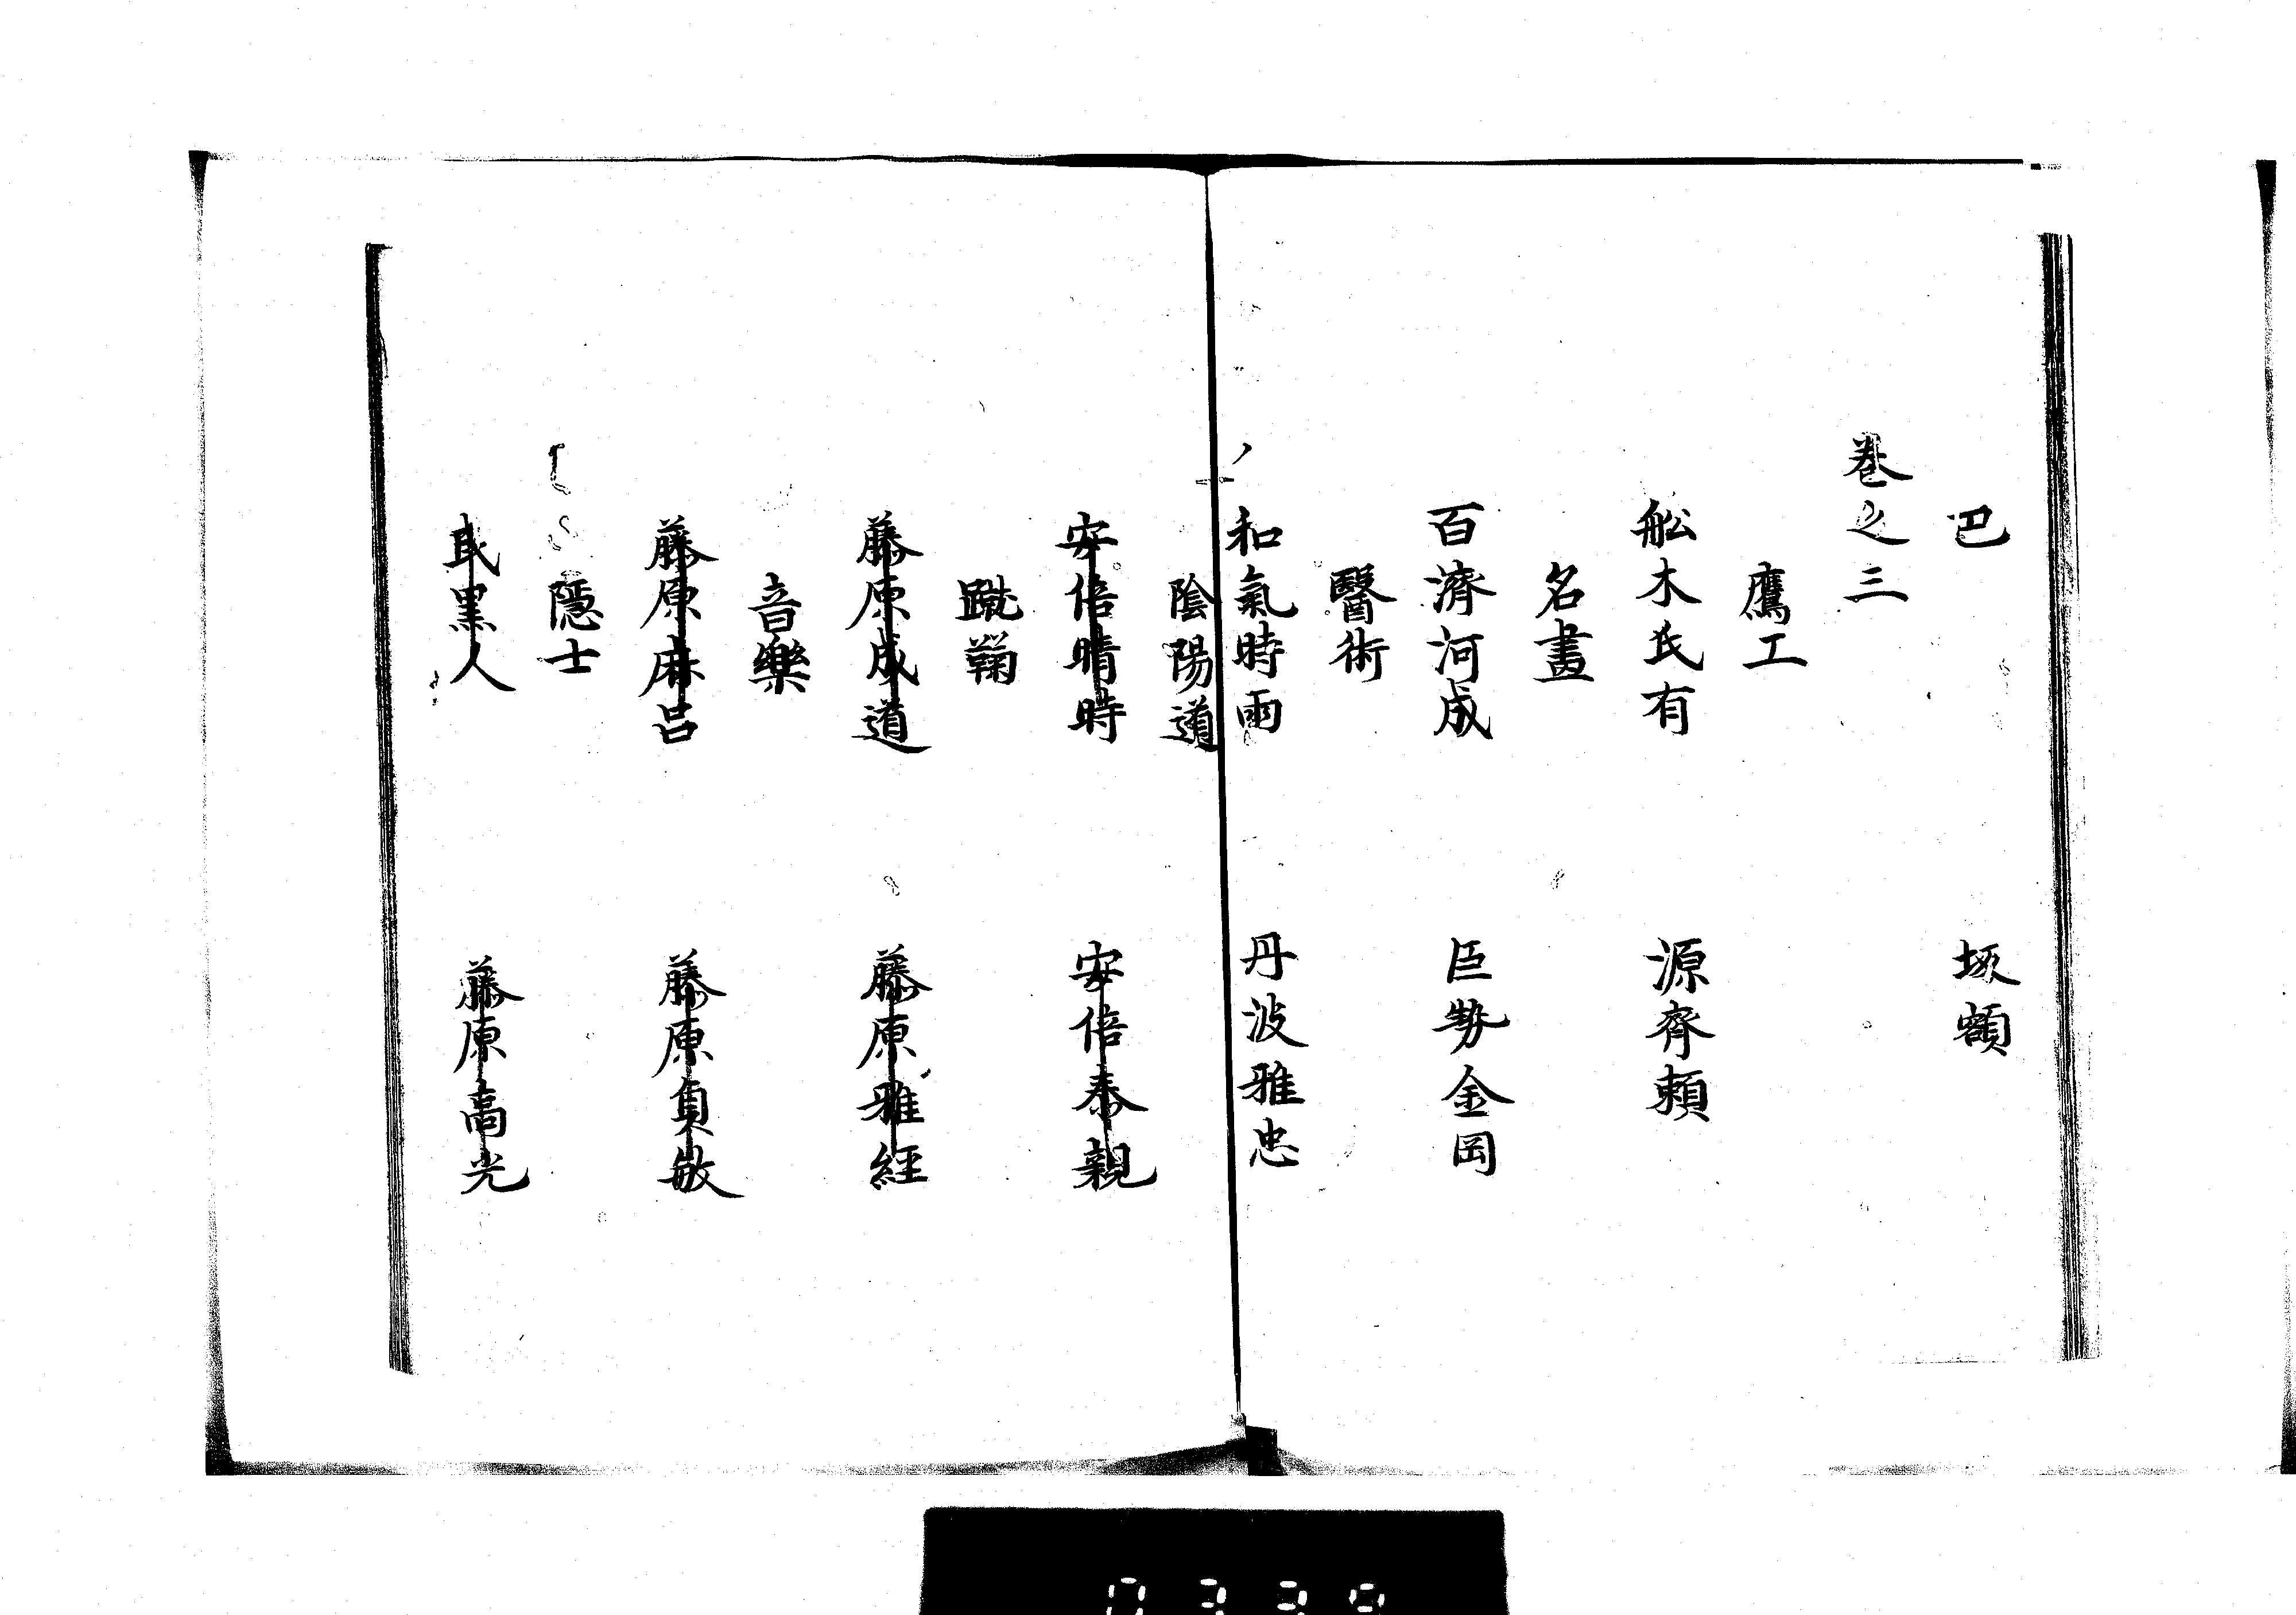 巴　坂額
巻之三
鷹工
舩木氏有　源齊頼
名畫
百濟河成　巨勢金岡
醫術
和氣時雨　丹波雅忠
陰陽道
安倍晴時　安倍泰親
蹴鞠
藤原成道　藤原雅経
音樂
藤原麻呂　藤原貞敏
隱士
民黒人　藤原高光